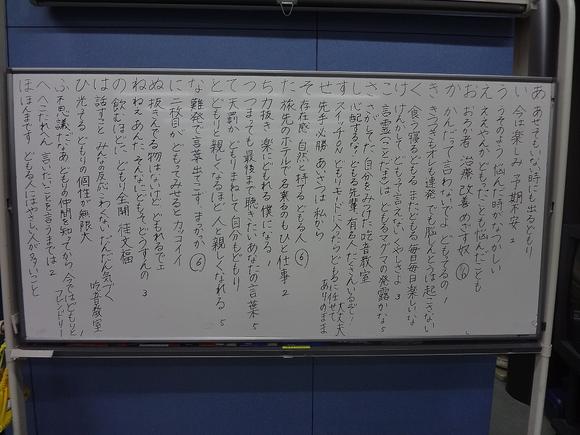 あ あせってもいない時にも出るどもり
い 今は楽しみ 予期不安 2
う うそのよう 悩んだ時がなつかしい
え ええやんか どもったことも 悩んだことも
お おろか者 治療 改善 めざす奴 6
か かんだって言わないでよ どもってるの 1
き きつつきもオレも連発 でも脳しんとうは起こさない
く 食う寝るどもる またどもる 毎日毎日楽しいな
け けんかして どもって言えない くやしさよ 3
こ 言霊(ことだま)は どもるマグマの発露かな 5
さ さがしてた 自分をみつけた 吃音教室
し 心配するな どもる先輩 有名人たくさんいるぞ 1
す スイッチ入り どもりモードに入ったら どもるに任せて 大丈夫 ありのまま
せ 先手必勝 あいさつは私から
そ 存在感 自然と持てる どもる人 6
た 旅先のホテルで名乗るのもひと仕事 2
ち 力抜き 楽にどもれる 僕になる 1
つ つまっても最後まで聴きたい あなたの言葉 5
て 天罰か どもりまねして自分もどもり
と どもりと 親しくなるほど人と親しくなれる 5
な 難発で 言葉出てこず まがもつ 6
に 二枚目が どもってみせると カッコイイ
ぬ 抜きんでる 物はないけど どもれるで工
ね ねえあんた そんなにどもってどうすんの 3
の 飲むほどに どもり全開 佳文福
は 話すこと みんな反応こわくない だんだん気づく 吃音教室
ひ 光ってる どもりの個性が無限大
ふ 不思議だなあ どもり仲間を知ってから 今ではどもりとフレンドリー 1
へ へこたれん 言いたいことを言うまでは 2
ほ ほんまですか どもる人にはやさしい人が多いってこと